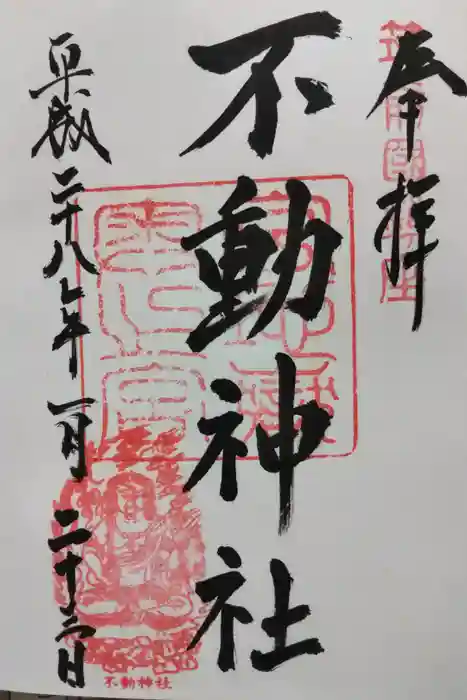 奉拝
不動神社
平成二十八年一月二十二日
不動神社